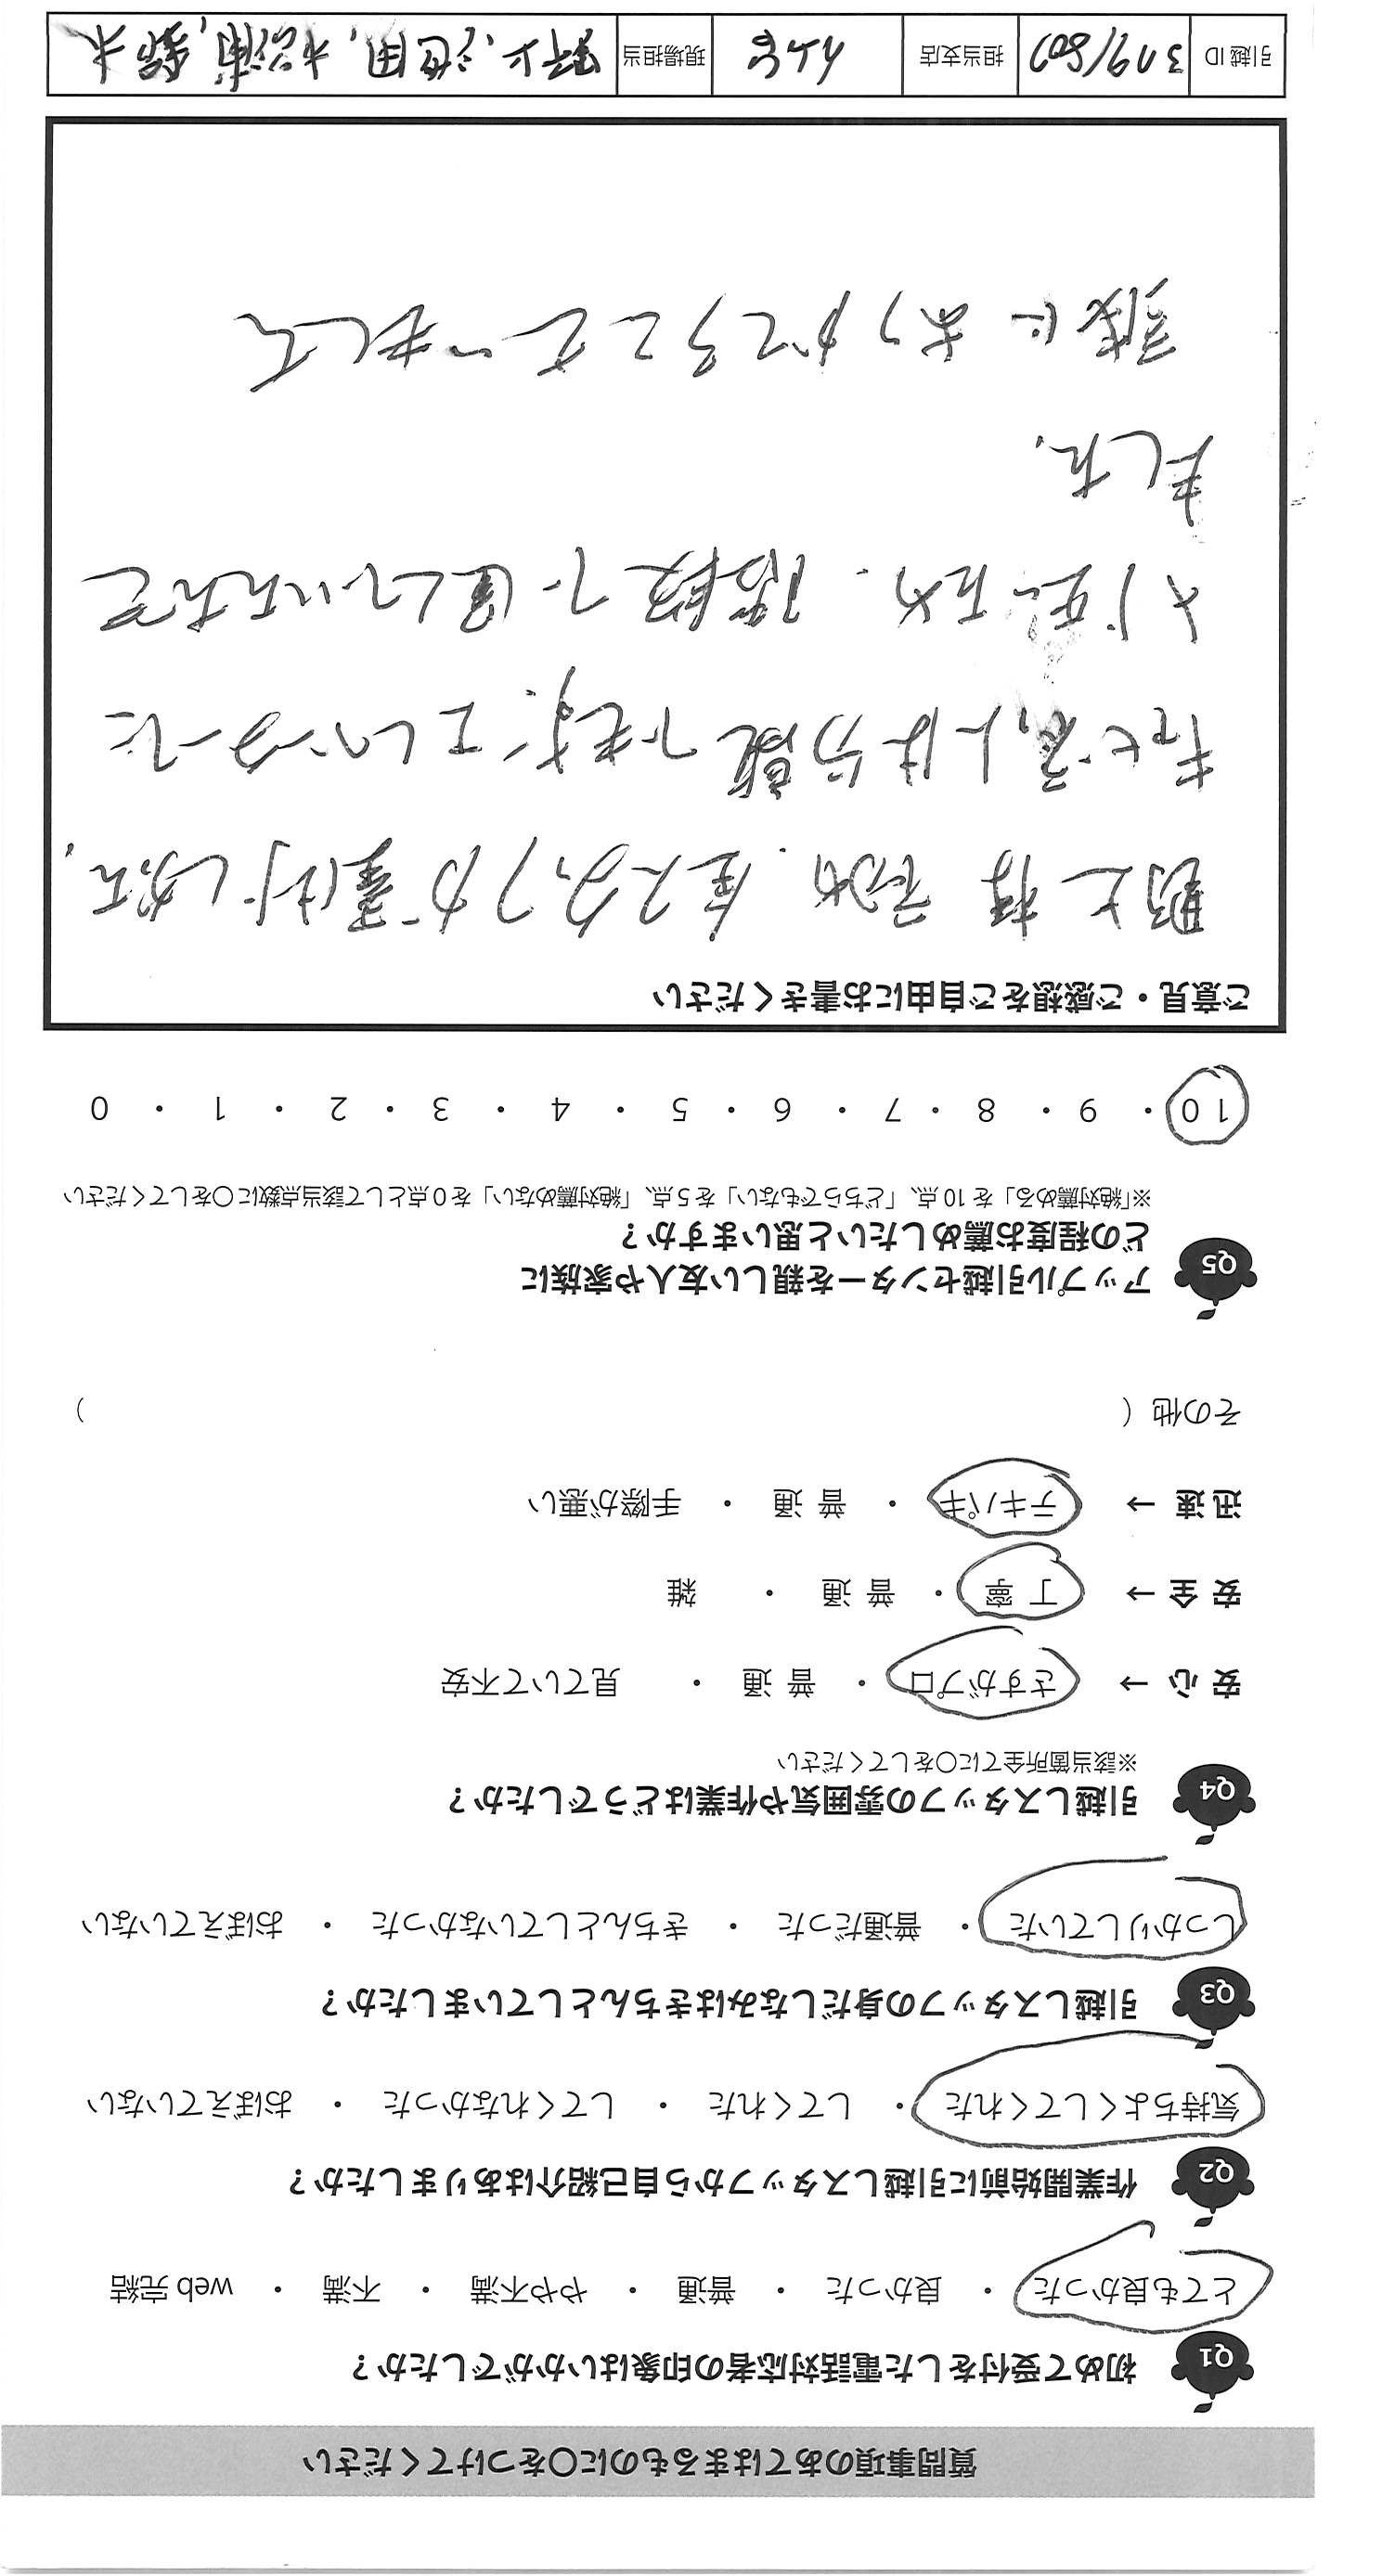 質問事項のあてはまるものに〇をつけてください
Q1 初めて受付をした電話対応者の印象はいかがでしたか？
とても良かった ・ 良かった ・ 普通 ・ やや不満 ・ 不満 ・ web 完結
Q2 作業開始前に引越しスタッフから自己紹介はありましたか？
気持ちよくしてくれた ・ してくれた ・ してくれなかった ・ おぼえていない
Q3 引越しスタッフの身だしなみはきちんとしていましたか？
しっかりしていた ・ 普通だった ・ きちんとしていなかった ・ おぼえていない
Q4 引越しスタッフの雰囲気や作業はどうでしたか？
※該当箇所全てに〇をしてください
安 心 → さすがプロ ・ 普 通 ・ 見ていて不安
安 全 → 丁 寧 ・ 普 通 ・ 雑
迅 速 → テキパキ ・ 普 通 ・ 手際が悪い
その他（ ）
Q5 アップル引越センターを親しい友人や家族に
どの程度お薦めしたいと思いますか？
※「絶対薦める」を 10 点、「どちらでもない」を 5 点、「絶対薦めない」を 0 点として該当点数に〇をしてください
10 ・ 9 ・ 8 ・ 7 ・ 6 ・ 5 ・ 4 ・ 3 ・ 2 ・ 1 ・ 0
ご意見・ご感想をご自由にお書きください
野上様 初め、全スタッフが
分離できず、エレベーターに
ため、階段で運していただき
ました。
誠にありがとうございました
引越 ID 担当支店 現場担当